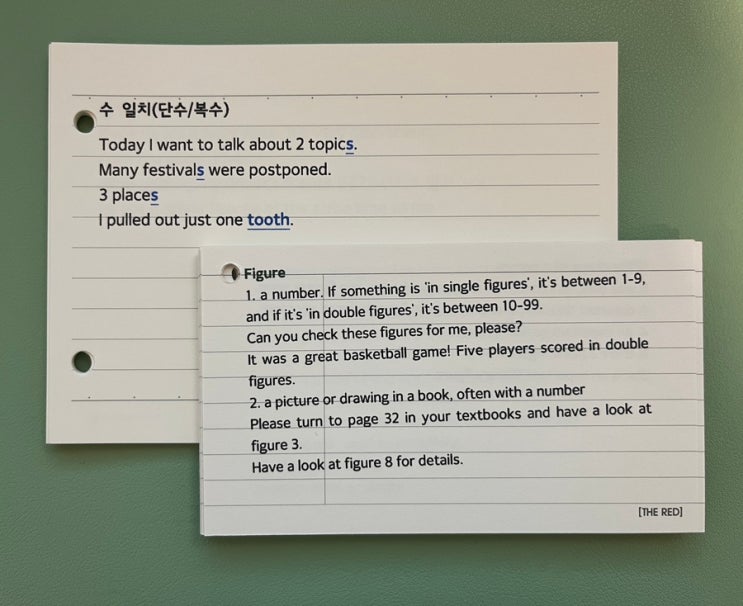 수 일치(단수/복수)
Today I want to talk about 2 topics.
Many festivals were postponed.
3 places
I pulled out just one tooth.
Figure
1. a number. If something is 'in single figures', it's between 1-9,
and if it's 'in double figures', it's between 10-99.
Can you check these figures for me, please?
It was a great basketball game! Five players scored in double
figures.
2. a picture or drawing in a book, often with a number
Please turn to page 32 in your textbooks and have a look at
figure 3.
Have a look at figure 8 for details.
[THE RED]